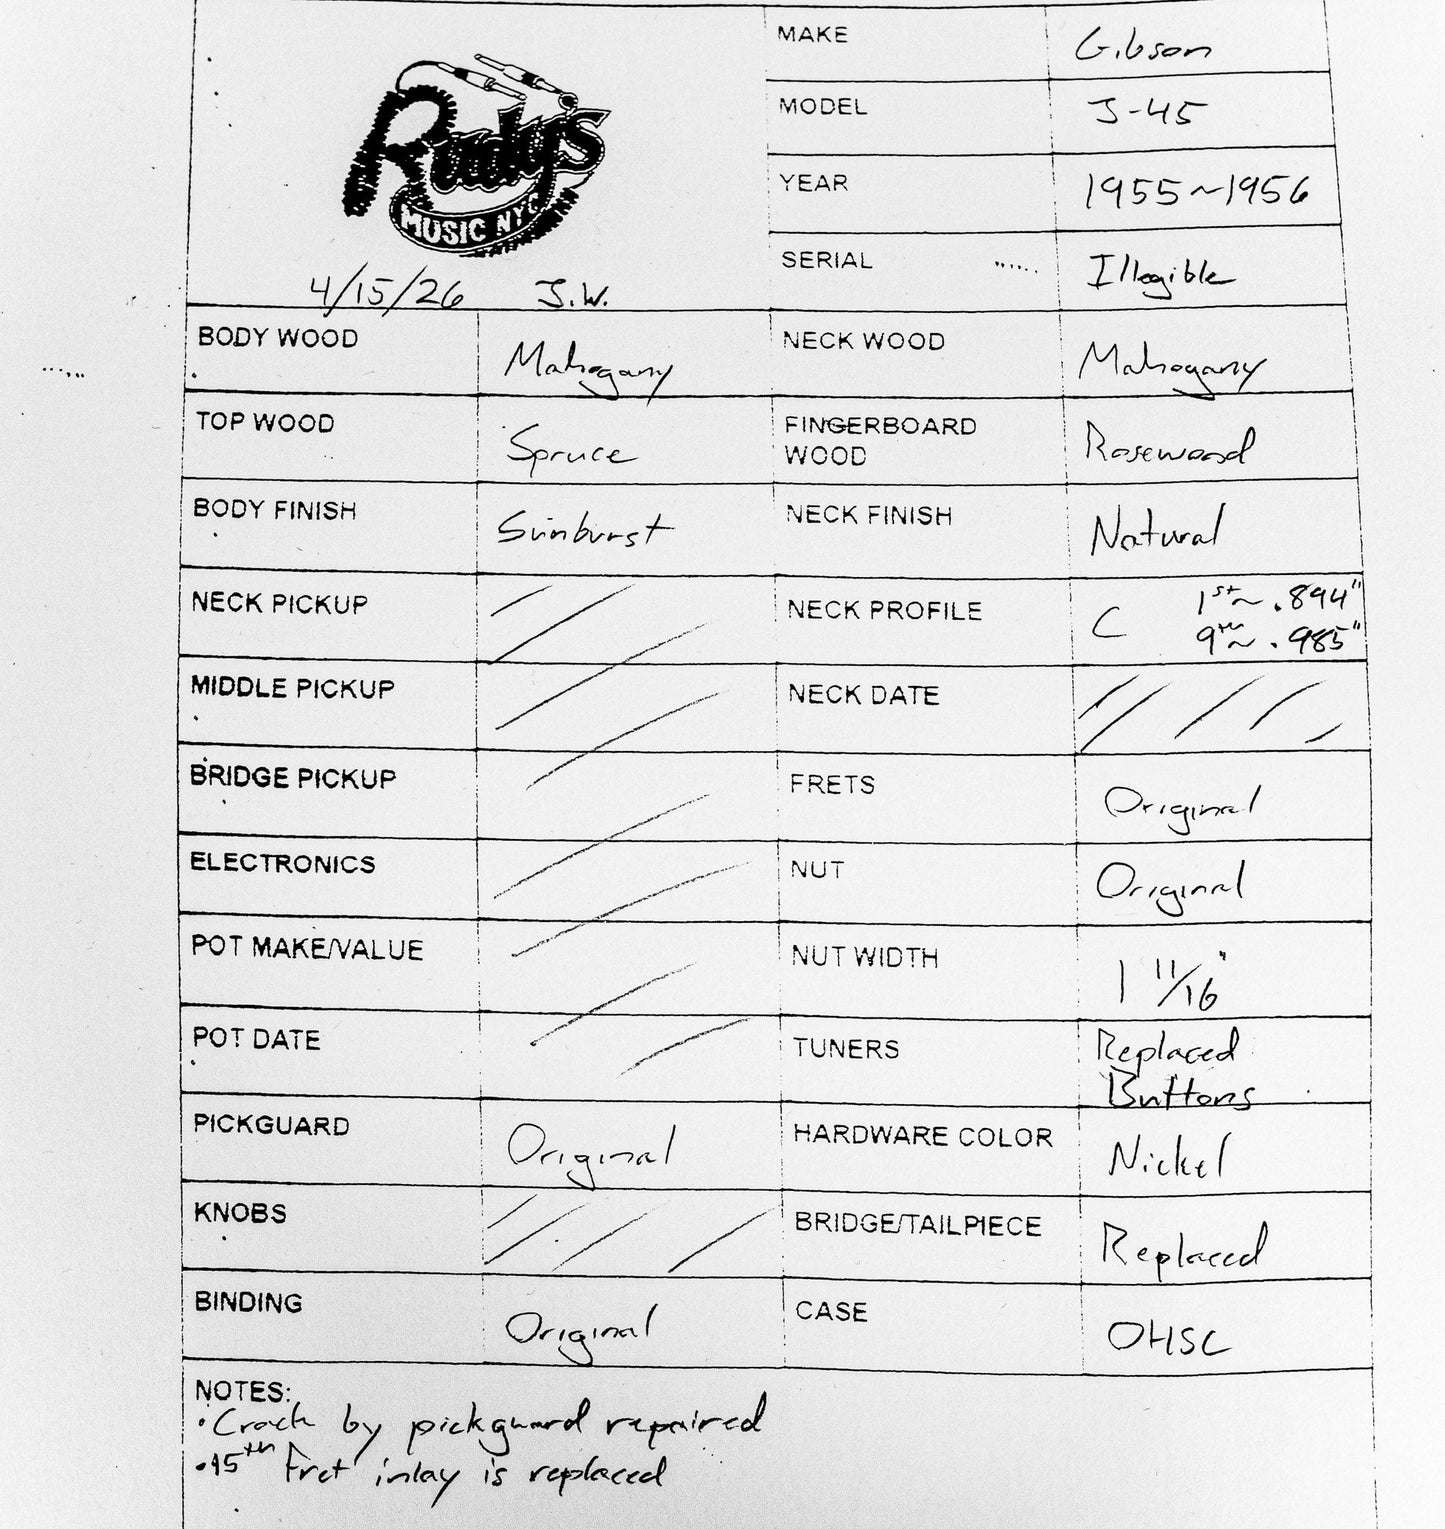 Rudy's
MUSIC NYC
4/15/26 J.W.
MAKE Gibson
MODEL J-45
YEAR 1955~1956
SERIAL Illegible
BODY WOOD Mahogany NECK WOOD Mahogany
TOP WOOD Spruce FINGERBOARD
WOOD Rosewood
BODY FINISH Sunburst NECK FINISH Natural
NECK PICKUP NECK PROFILE C 1st ~ .894"
9th ~ .985"
MIDDLE PICKUP NECK DATE
BRIDGE PICKUP FRETS Original
ELECTRONICS NUT Original
POT MAKE/VALUE NUT WIDTH 1 11/16"
POT DATE TUNERS Replaced
Buttons
PICKGUARD Original HARDWARE COLOR Nickel
KNOBS BRIDGE/TAILPIECE Replaced
BINDING Original CASE OHSC
NOTES:
• Crack by pickguard repaired
• 15th Fret inlay is replaced